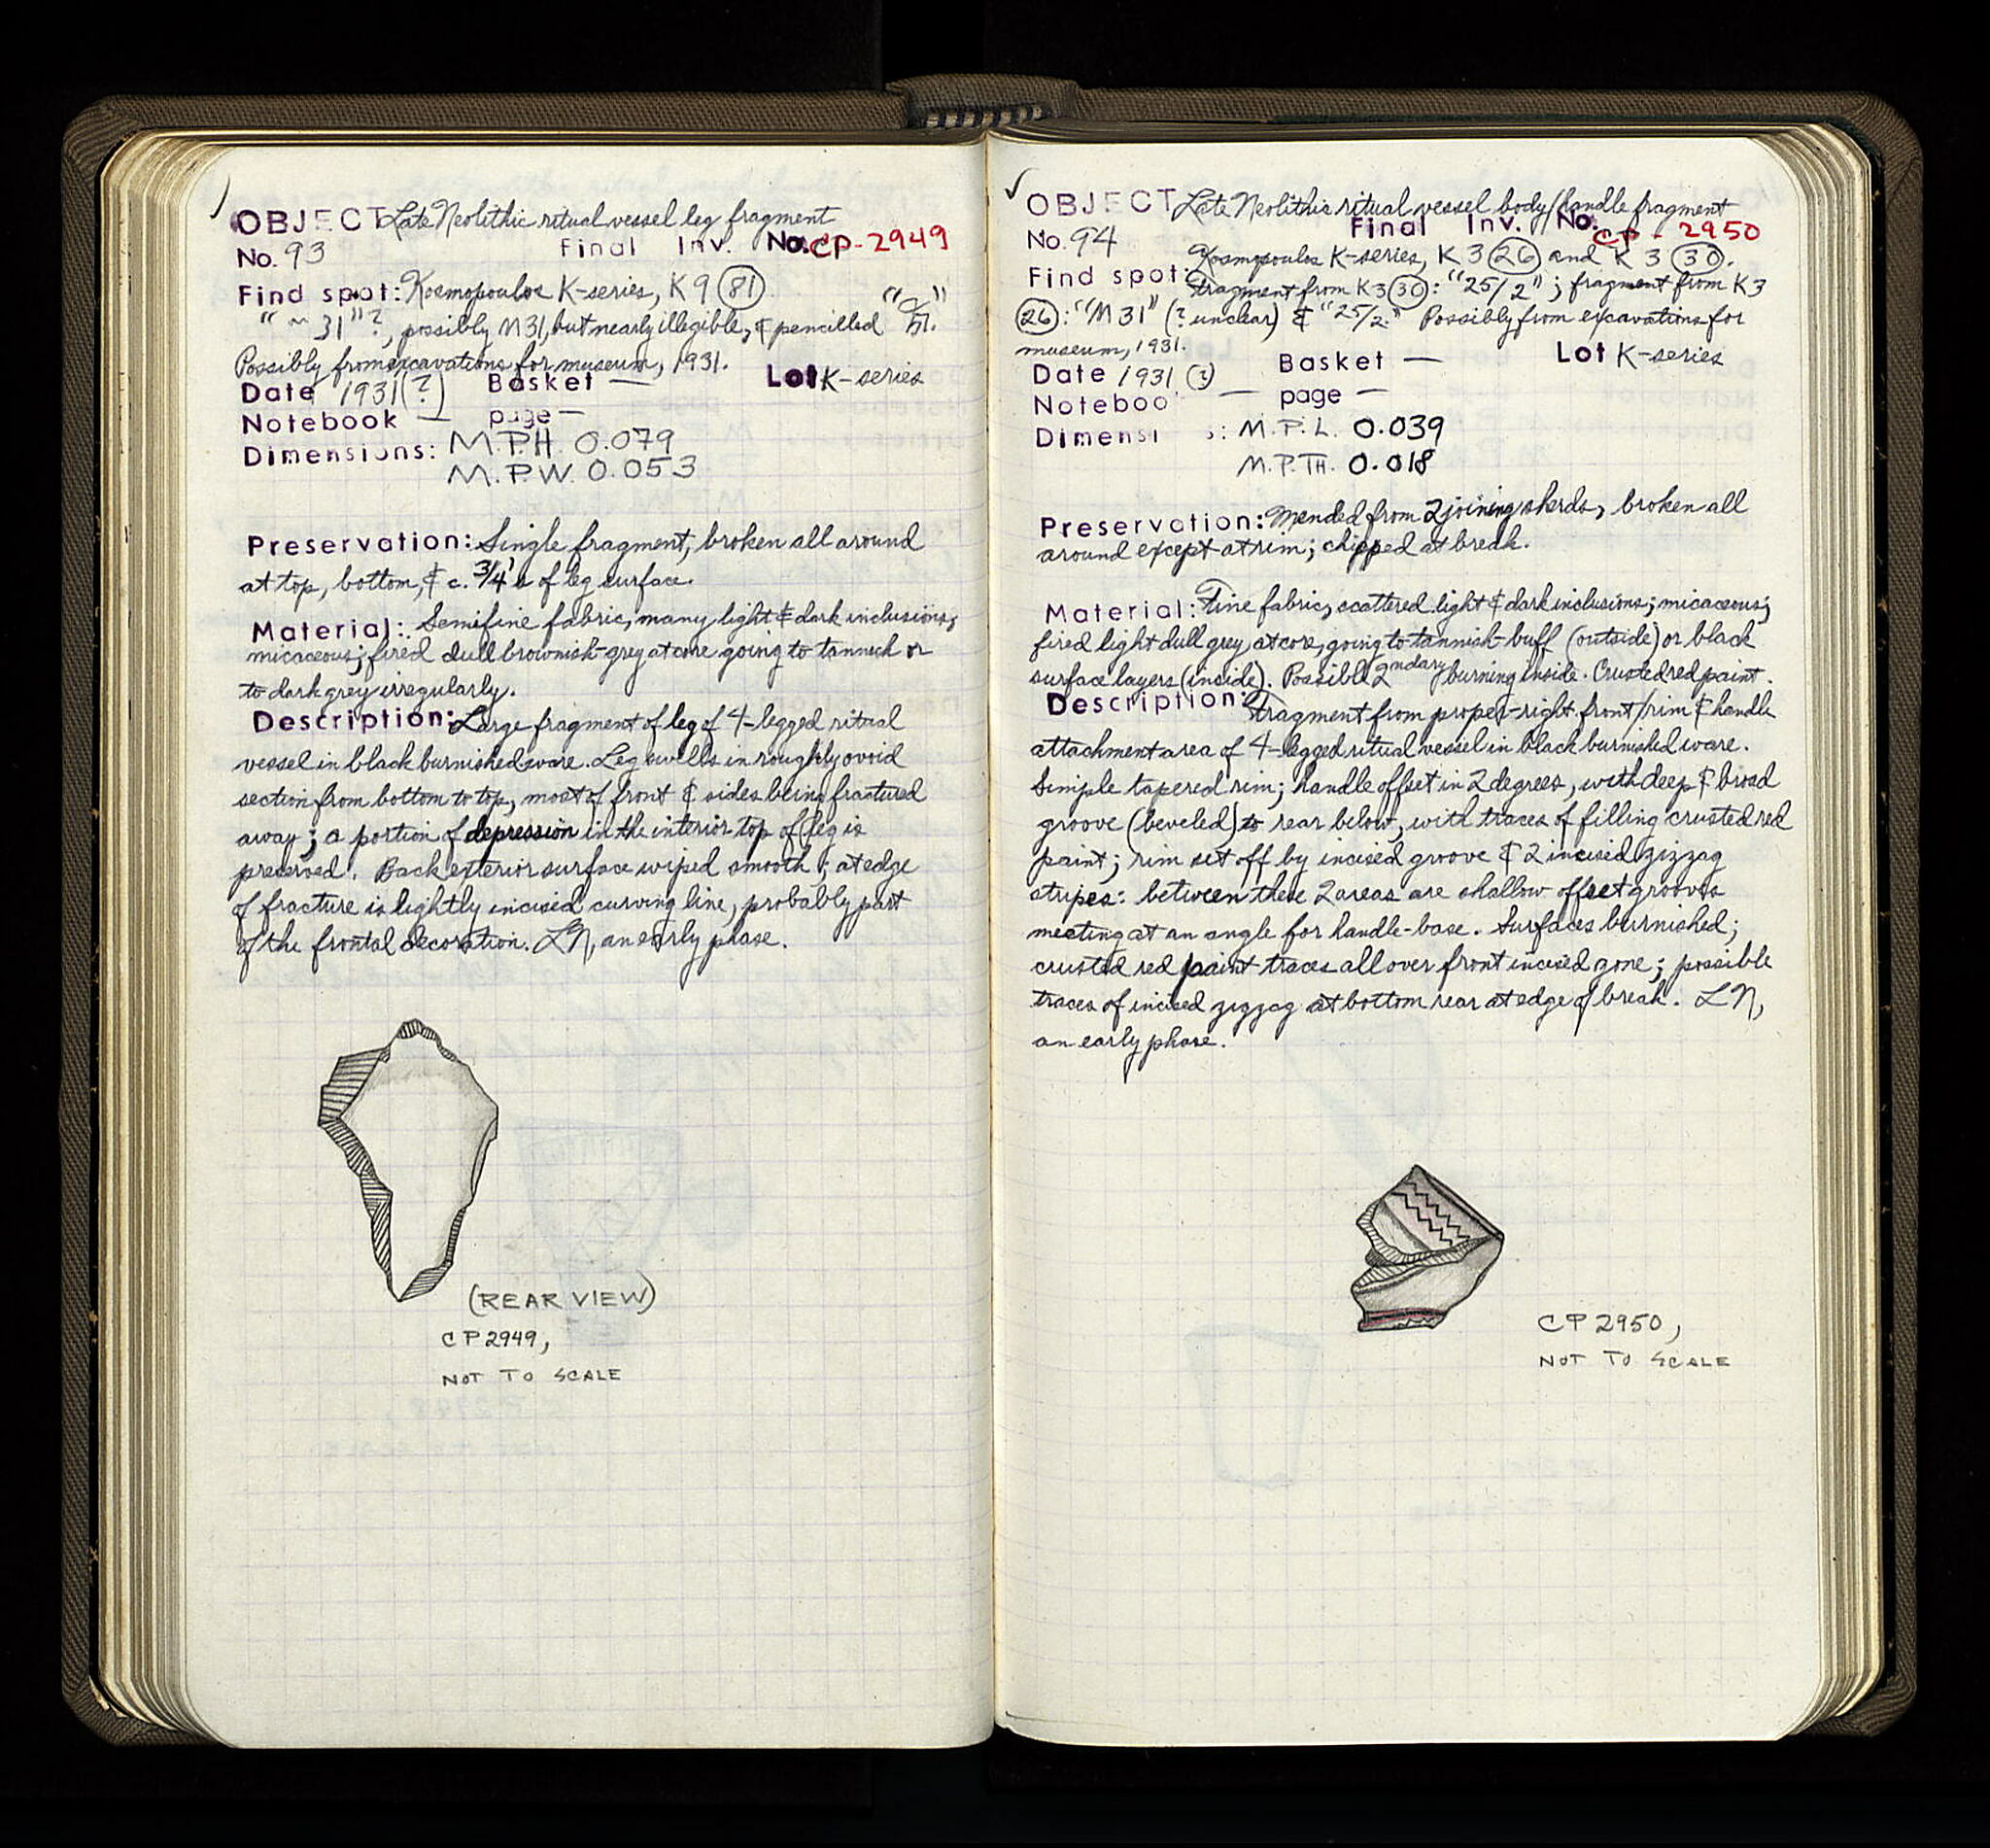 OBJECT Late Neolithic ritual vessel leg fragment
No. 93 Final Inv. No. CP-2949
Find spot: Kosmopoulos K-series, K 9 (81)
" ~ 31"?, possibly M31, but nearly illegible, & pencilled
Possibly from excavations for museum, 1931.
Date 1931(?) Basket — Lot K-series
Notebook — page —
Dimensions: M.P.H. 0.079
M.P.W. 0.053
Preservation: Single fragment, broken all around
at top, bottom, & c. 3/4's of leg surface.
Material: Semifine fabric, many light & dark inclusions;
micaceous; fired dull brownish-grey at core going to tannish or
to dark grey irregularly.
Description: Large fragment of leg of 4-legged ritual
vessel in black burnished ware. Leg swells in roughly ovoid
section from bottom to top, most of front & sides being fractured
away; a portion of depression in the interior top of leg is
preserved. Back exterior surface wiped smooth; at edge
of fracture is lightly incised curving line, probably part
of the frontal decoration. LN, an early phase.
(REAR VIEW)
CP 2949,
NOT TO SCALE
✓ OBJECT Late Neolithic ritual vessel body/handle fragment
No. 94 Final Inv. No. CP - 2950
Find spot: Kosmopoulos K-series, K 3 (26) and K 3 (30).
Fragment from K3 (30): "25/2"; fragment from K3
(26): "M 31" (? unclear) & "25/2." Possibly from excavations for
museum, 1931.
Date 1931 (?) Basket — Lot K-series
Noteboo — page —
Dimensi s: M.P.L. 0.039
M.P.TH. 0.018
Preservation: Mended from 2 joining sherds, broken all
around except at rim; chipped at break.
Material: Fine fabric, scattered light & dark inclusions; micaceous;
fired light dull grey at core, going to tannish-buff (outside) or black
surface layers (inside). Possible 2ndary burning inside. Crusted red paint.
Description: Fragment from proper-right front/rim & handle
attachment area of 4-legged ritual vessel in black burnished ware.
Simple tapered rim; handle offset in 2 degrees, with deep & broad
groove (beveled) to rear below, with traces of filling crusted red
paint; rim set off by incised groove & 2 incised zigzag
stripes: between these 2 areas are shallow offset grooves
meeting at an angle for handle-base. Surfaces burnished;
crusted red paint traces all over front incised zone; possible
traces of incised zigzag at bottom rear at edge of break. LN,
an early phase.
CP 2950,
NOT TO SCALE